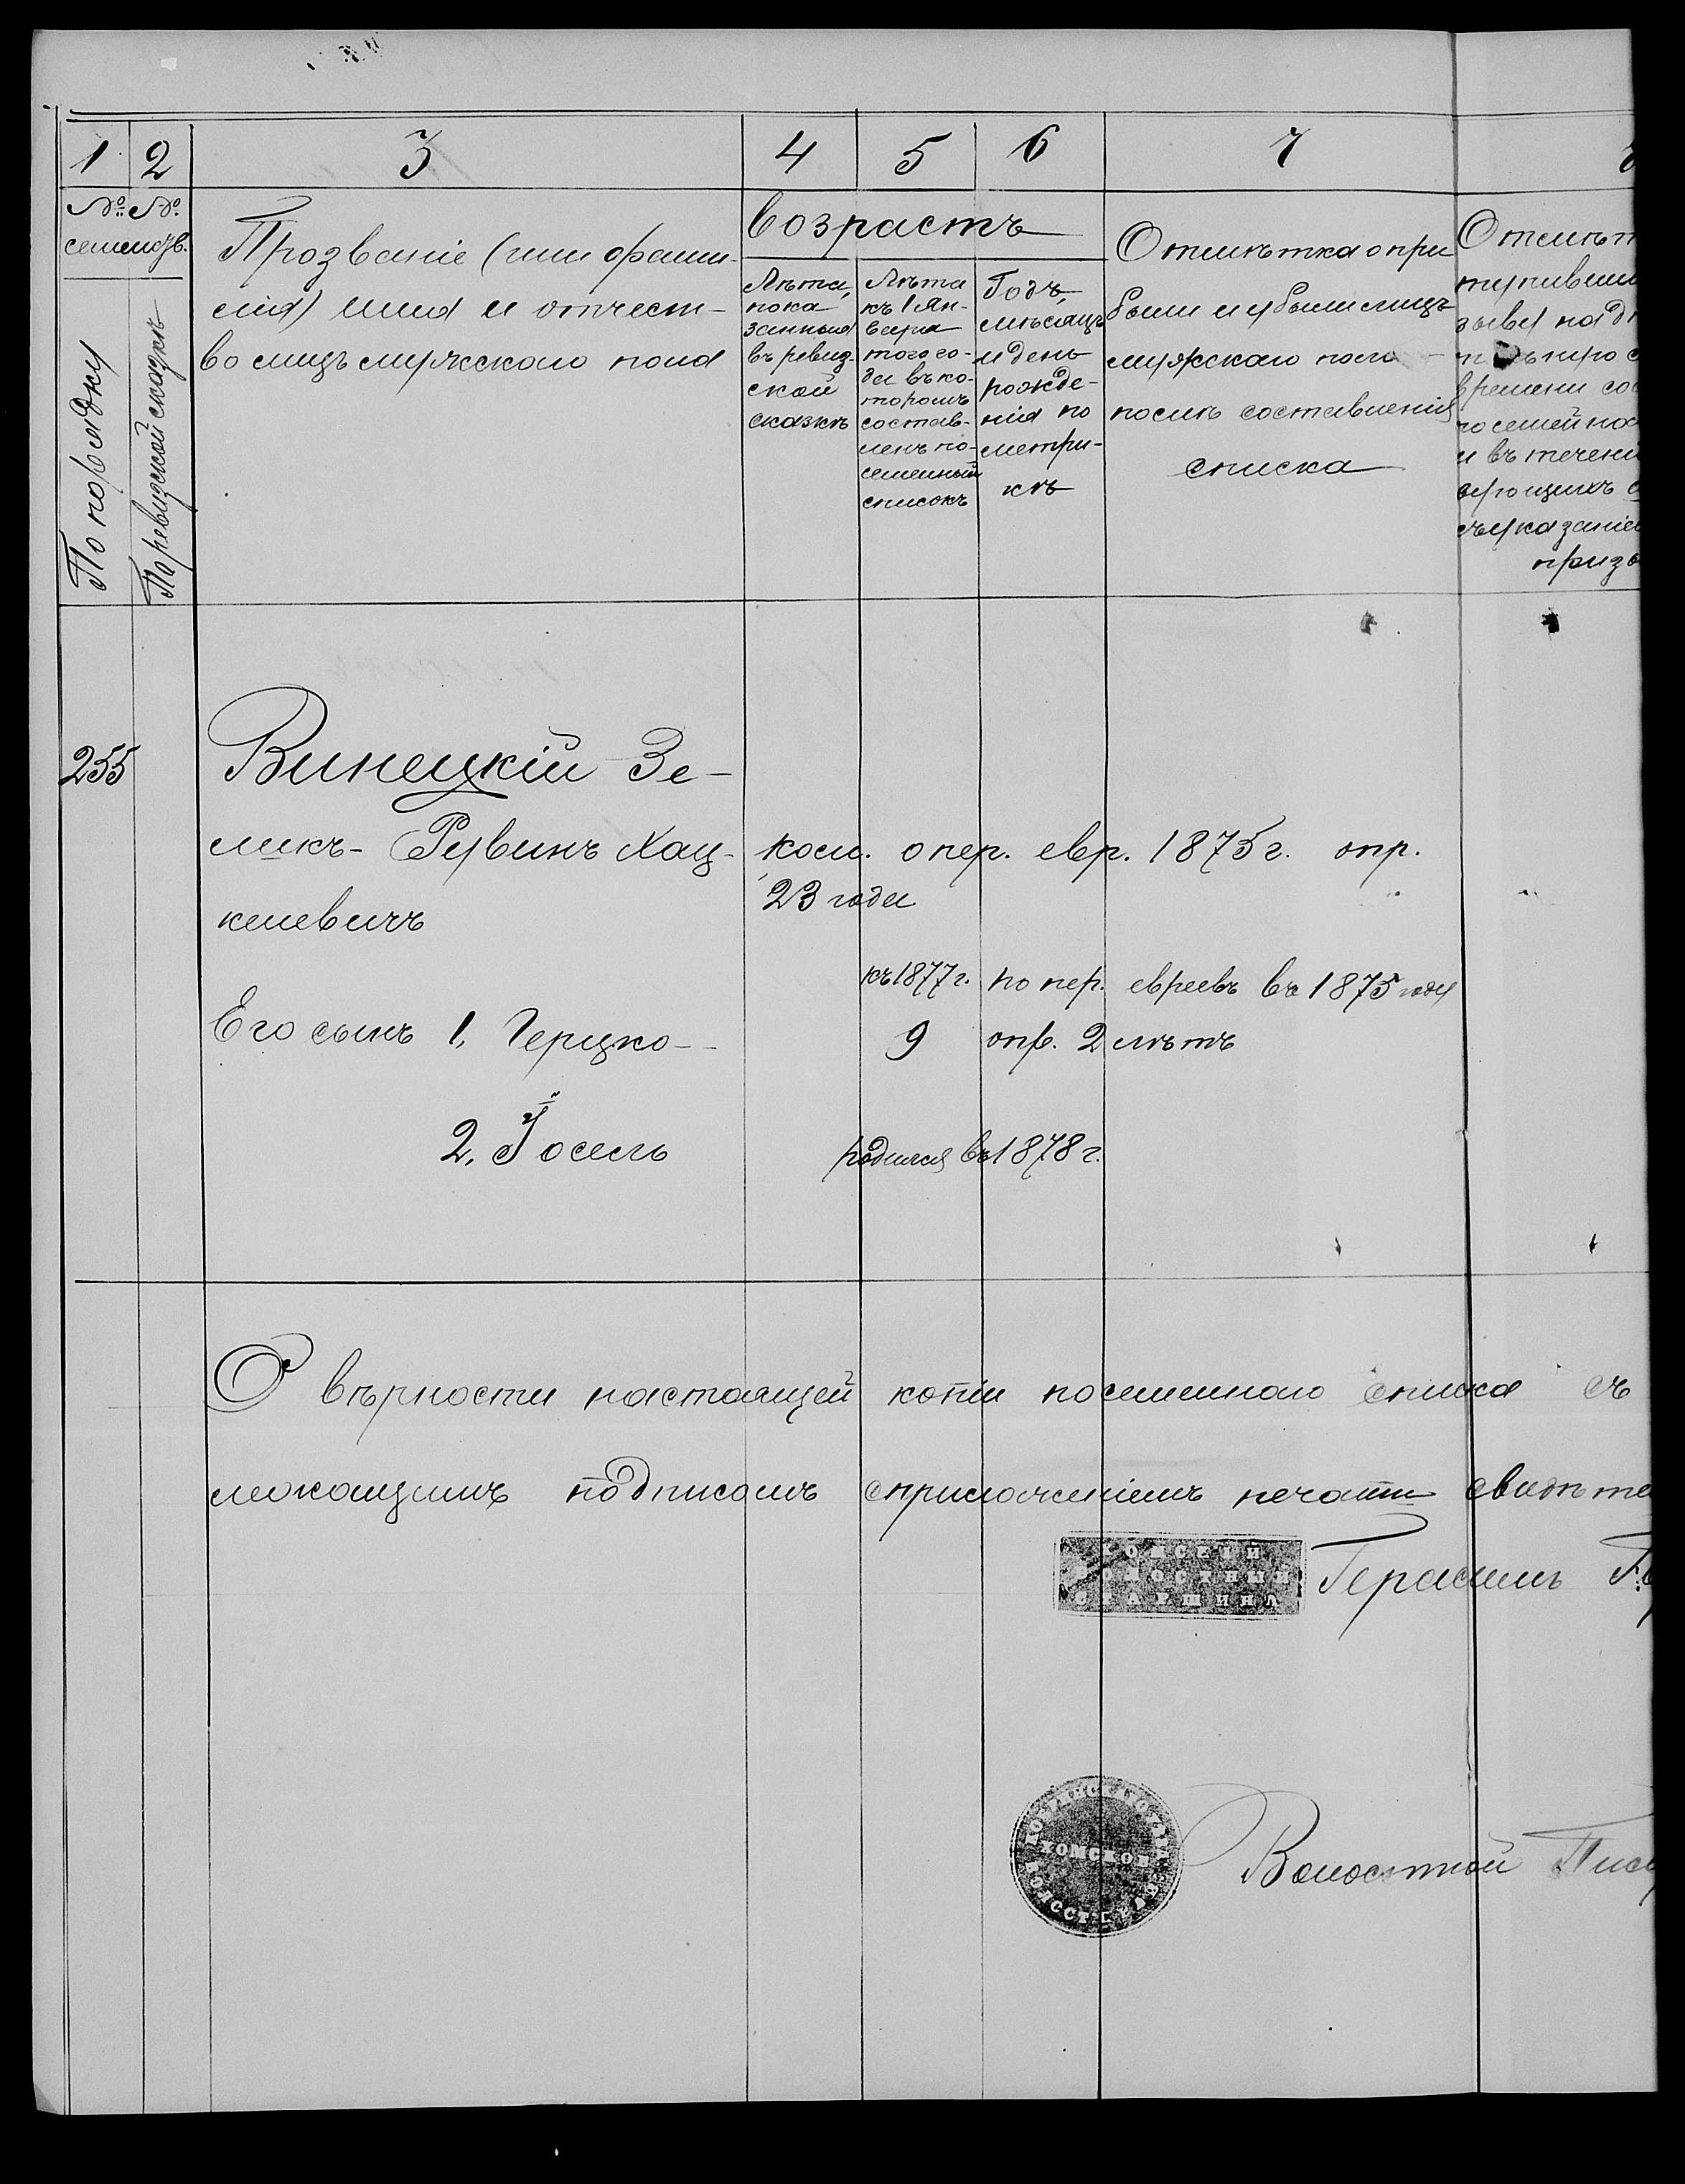 1 2 3 4 5 6 7
№ № семейств.
По порядку
По ревизской сказкѣ
Прозваніе (или фами-
лія) имя и отчест-
во лицъ мужскаго пола
возрастъ
Лѣта,
пока
занныя
въ ревиз-
ской
сказкѣ
Лѣта
къ 1 Ян-
варя
того го-
да въ ко-
торомъ
состав-
ленъ по-
семейный
списокъ
Годъ,
мѣсяцъ
и день
рожде-
нія по
метри-
кѣ
Отмѣтка о при
были и убыли лицъ
мужскаго пола
послѣ составленія
списка
Отмѣт
тупивши
зыву на д
времени со
посемейна
и въ течені
ующихъ
съ указаніе
призы
255 Винецкій Зе-
ликъ-Рувинъ Хац- ком. о пер. евр. 1875 г. опр.
23 года
келевичъ
къ 1877 г. по пер. евреевъ въ 1875 году
Его сынъ 1, Герцко 9 опр. 2 лѣтъ
2, Іосель родился въ 1878 г.
О вѣрности настоящей копіи посемейнаго списка съ
лежащимъ подписомъ съ приложеніемъ печати свидѣте
ХОМСКІЙ
ВОЛОСТНЫЙ
СТАРШИНА
Герасимъ
КОБРИНСКАГО УѢЗДА
ХОМСКОЕ
ВОЛОСТ. ПРАВЛ.
Волостной Писа